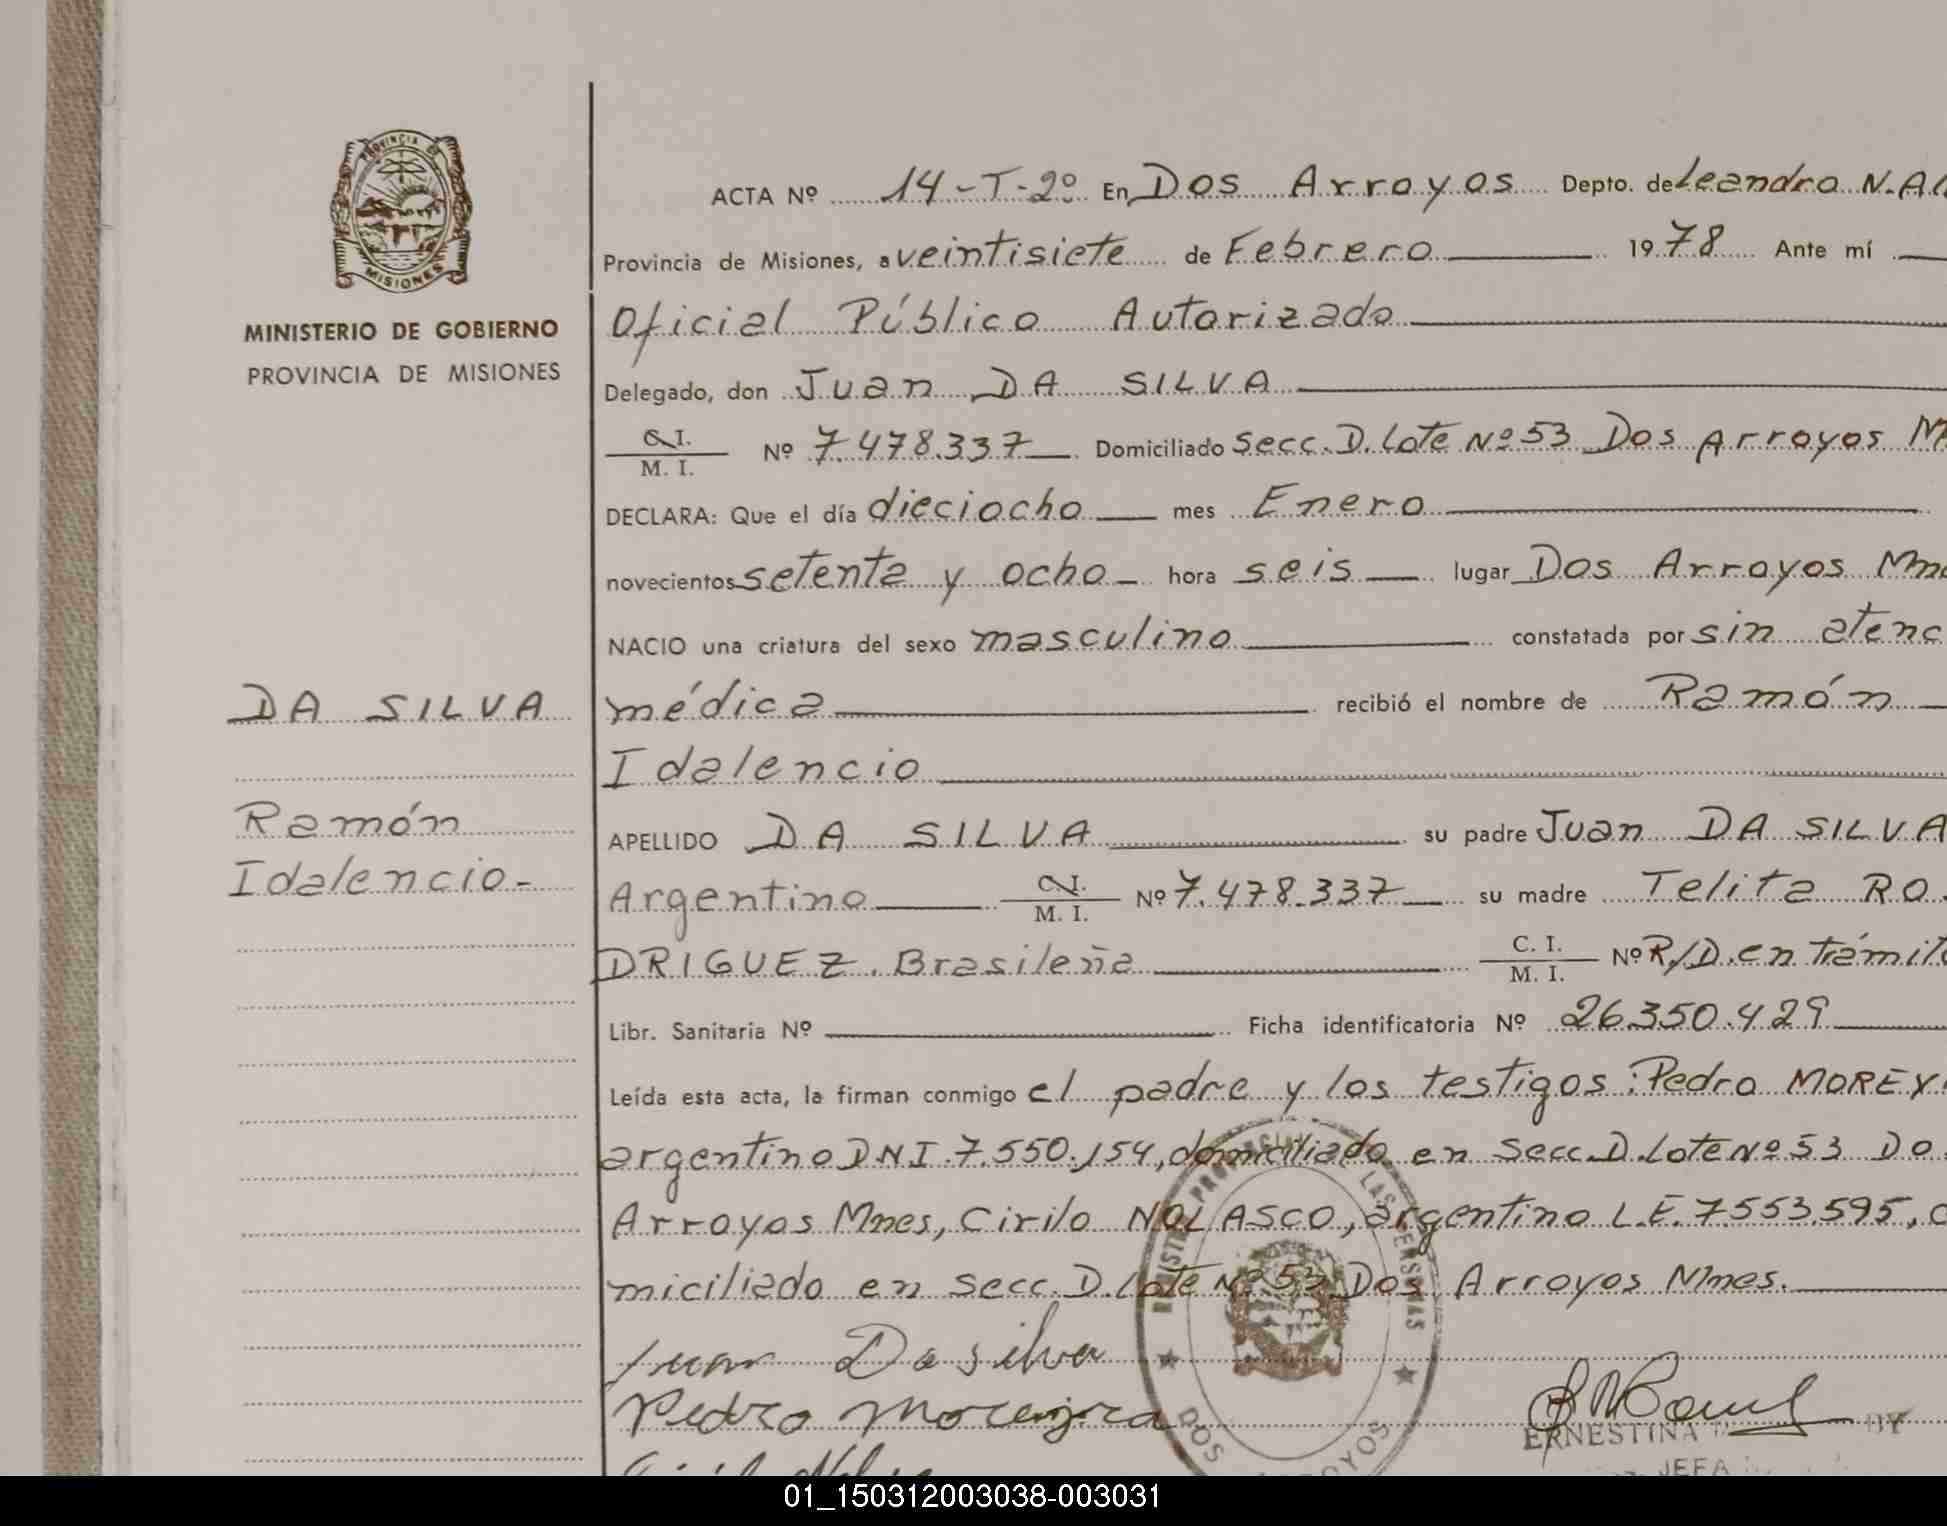 PROVINCIA DE
MISIONES
MINISTERIO DE GOBIERNO
PROVINCIA DE MISIONES
DA SILVA
Ramón
Idalencio-
ACTA Nº 14-T-2º En Dos Arroyos Depto. de Leandro N. Al
Provincia de Misiones, a veintisiete de Febrero 1978 Ante mí
Oficial Público Autorizado
Delegado, don Juan DA SILVA
C.I. M. I. Nº 7.478.337 Domiciliado Secc. D. Lote Nº 53 Dos Arroyos M
DECLARA: Que el día dieciocho mes Enero
novecientos setenta y ocho hora seis lugar Dos Arroyos Mn
NACIO una criatura del sexo masculino constatada por sin atenc
médica recibió el nombre de Ramón
Idalencio
APELLIDO DA SILVA su padre Juan DA SILVA
Argentino C.I. M. I. Nº 7.478.337 su madre Telita RO
DRIGUEZ. Brasileña C. I. M. I. Nº R/D. en trámit
Libr. Sanitaria Nº Ficha identificatoria Nº 26.350.429
Leída esta acta, la firman conmigo el padre y los testigos: Pedro MOREY
argentino DNI. 7.550.154, domiciliado en Secc. D. Lote Nº 53 Do
Arroyos Mnes, Cirilo NOLASCO, argentino L.E. 7.553.595,
miciliado en Secc. D. Lote Nº 53 Dos Arroyos Mnes.
Juan Da silva
Pedro Moreyra
ERNESTINA
JEFA
DOS ARROYOS
01_150312003038-003031